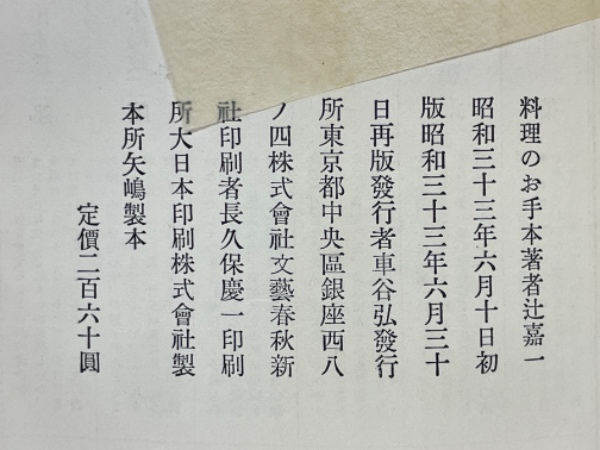 料理のお手本著者辻嘉一
昭和三十三年六月十日初
版昭和三十三年六月三十
日再版發行者車谷弘發行
所東京都中央區銀座西八
ノ四株式會社文藝春秋新
社印刷者長久保慶一印刷
所大日本印刷株式會社製
本所矢嶋製本
定價二百六十圓